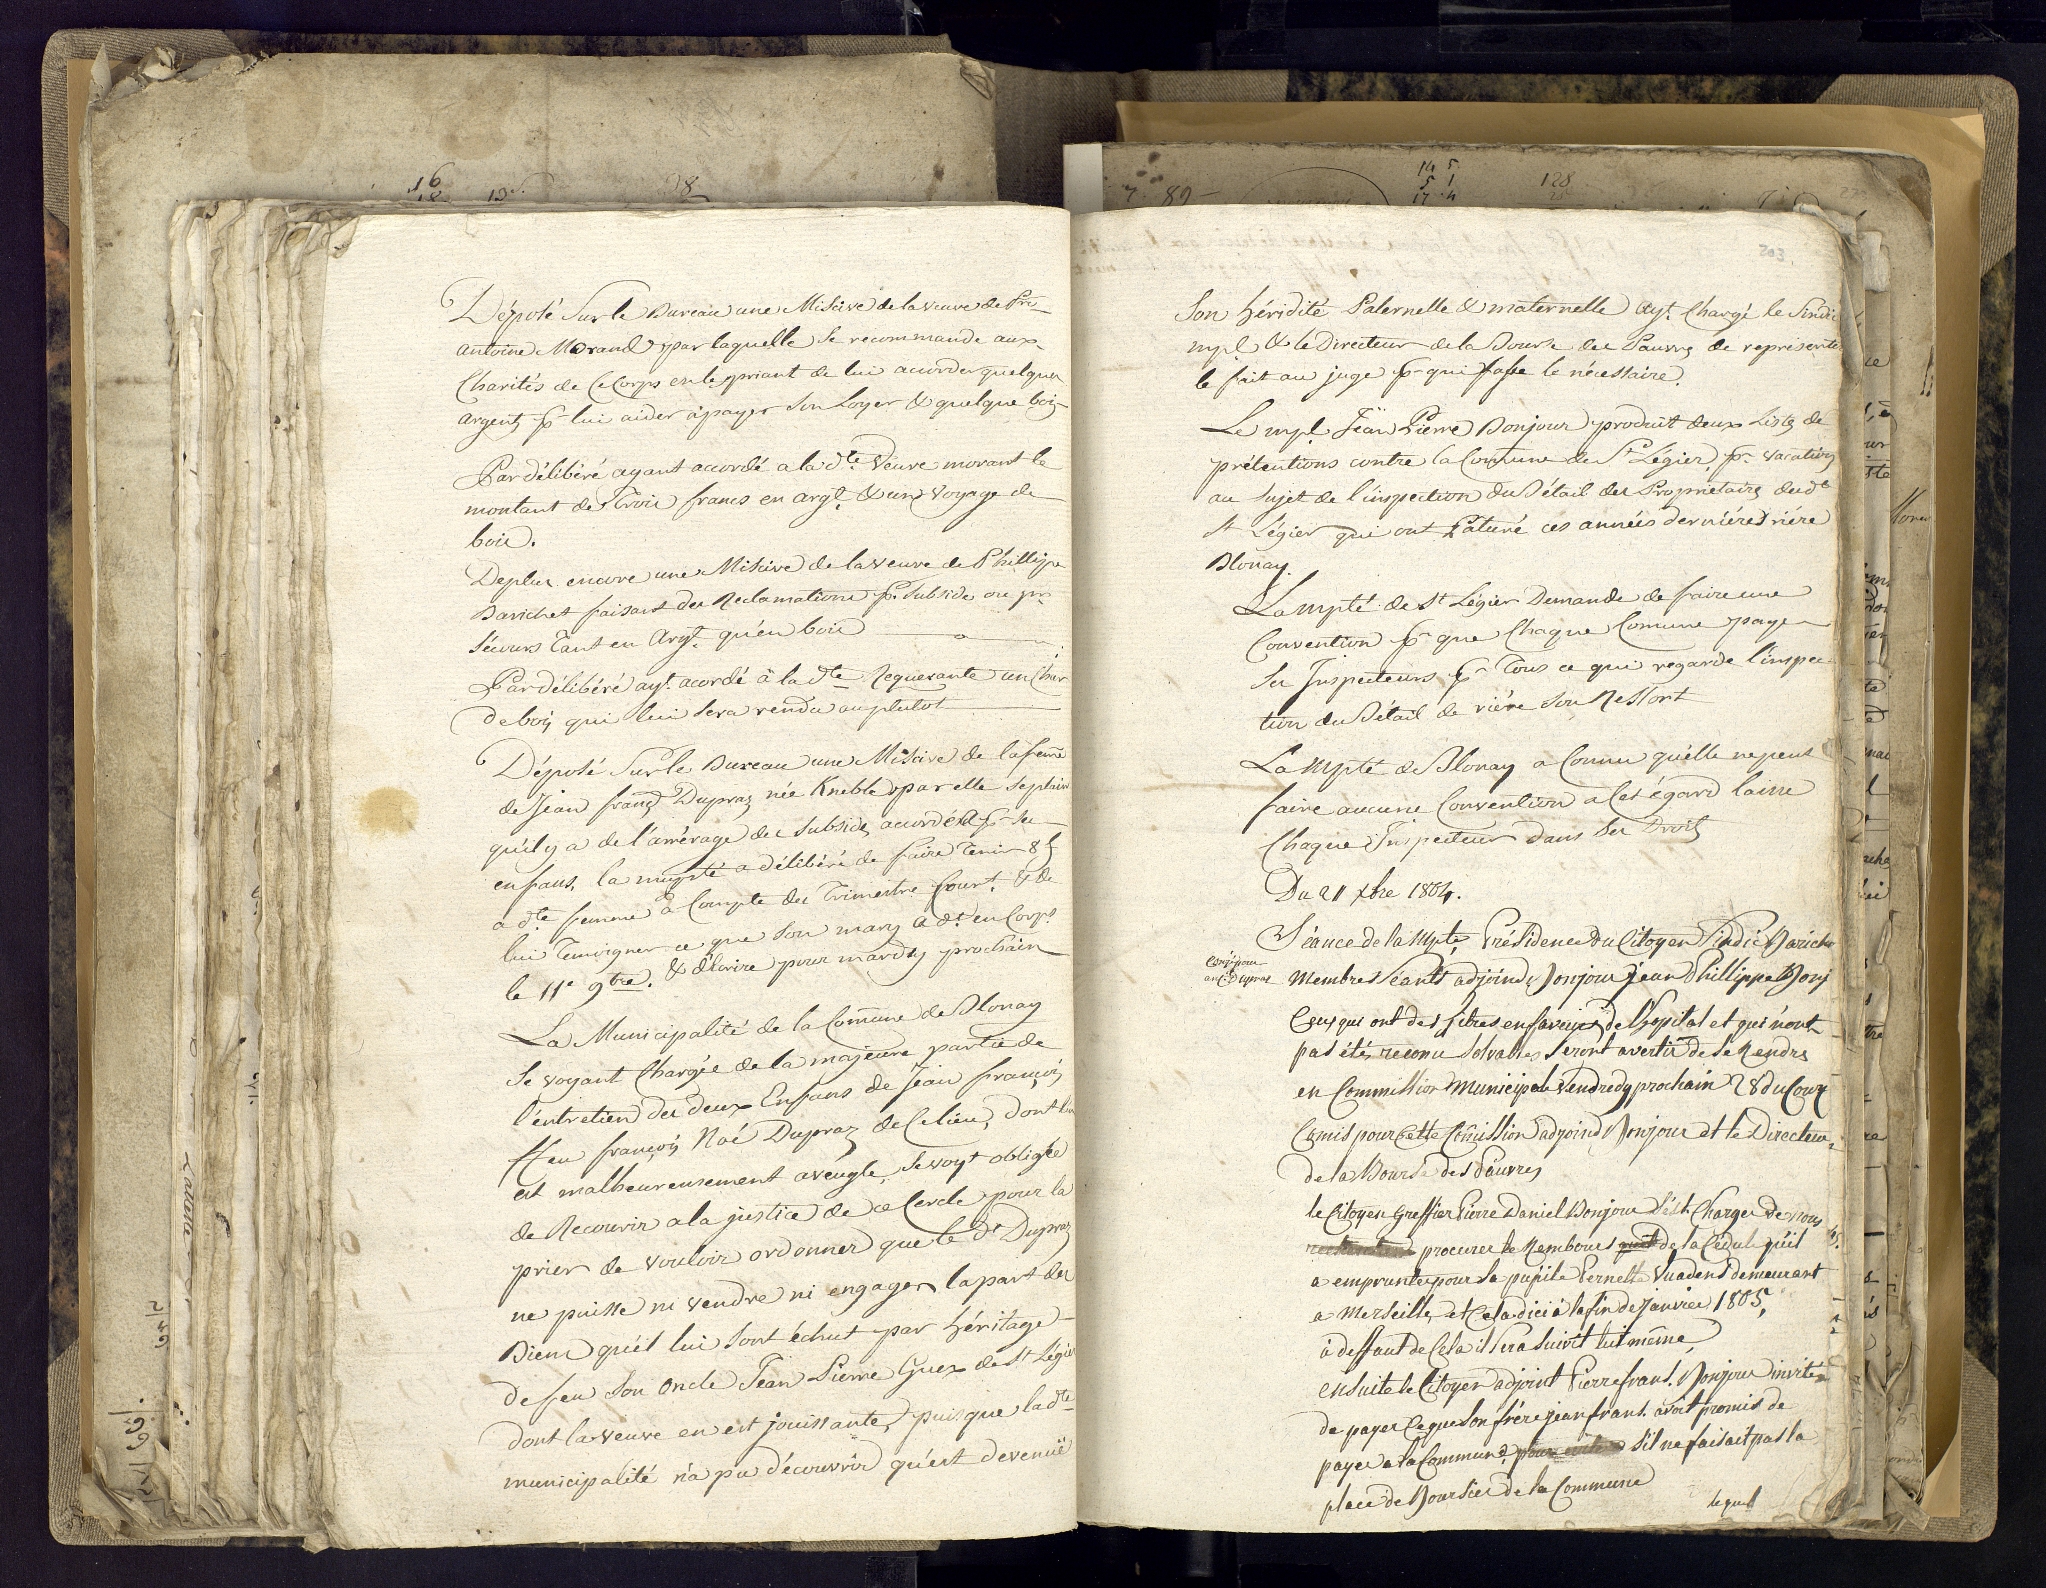 Déposé Sur le Bureau une Missive de la veuve de Pre
Antoine Morand par laquelle Se recommande aux
Charités de Ce Corps en le priant de lui accorder quelque
argent pr lui aider à payer Son Loyer & quelque bois
Par délibéré ayant accordé a la dte Veuve morant le
montant de Trois francs en argt & un voyage de
bois.
De plus encore une Missive de la veuve de Phillipe
Barichet faisant des Reclamations pr Subside ou pr
Sécours Tant en Argt qu'en bois
Par délibéré ayt acordé à la dte Requerante un Char
de bois qui lui Sera rendu au plutot
Déposé Sur le Bureau une Missive de la feme
de Jean franç Dupraz née Kneble par elle Se plaint
qu'il y a de l'arrérage des Subsides accordés pr Ses
enfans, la mupté a délibéré de faire Tenir 8
a dte femme à Compte du Trimestre Court. & de
lui Temoigner ce que Son mary a dt en Corps
le 11e 9bre. & d'écrire pour mardy prochain
La Municipalité de la Comune de Blonay
Se voyant Chargée de la majeure partie de
l'entretien des deux Enfans de Jean françois
ffeu françois Noé Dupraz de Ce lieu, dont un
est malheureusement aveugle, Se voyt obligée
de Recourir a la justice de ce Cercle pour la
prier de vouloir ordonner que le dt Dupraz
ne puisse ni vendre ni engager la part des
Biens qu'il lui Sont échut par héritage
de feu Son Oncle Jean Pierre Guex de St Légier
dont la veuve en est jouissante, puisque la dte
municipalité n'a pu découvrir qu'est devenuë
203
Son héridité Paternelle & maternelle ayt. Chargé le Sindic
mpl & le Directeur de la Bourse des Pauvres de representer
le fait au juge pr qui fasse le nécessaire.
Le mpl Jean Pierre Bonjour produit deux Listes de
prétentions contre la Comune de St Légier pr vacations
au Sujet de l'inspection du Bétail des Proprietaires dudt
St Légier qui ont Paturé ces années derniéres riére
Blonay.
La mpté de St Légier Demande de faire une
Convention pr que Chaque Comune paye
Ses Inspecteurs pr Tous ce qui regarde l'inspec
tion du Bétail de riére Son Ressort
La Mpté de Blonay a Connu qu'elle ne peut
faire aucune Convention a Cet égard laisse
Chaque Inspecteur dans Ses Droits
Du 21 xbre 1804.
Séance de la Mpté, Présidence du Citoyen Sindic Bariche
Membres Séants adjoinds Bonjour Jean Phillippe Bonj
Ceux qui ont des titres en faveurs de l'hopital et qui n'ont
pas étés reconu Solvables Seront avertis de Se Rendre
en Commission Municipale vendredy prochain 28 du Cour
Comis pour Cette Comission adjoind Bonjour et le Directeur
de la Bourse des Pauvres
le Citoyen Greffier Pierre Daniel Bonjour S'est Charger de nous
procurer le Rembours de la Cédule qu'il
a empruntée pour la pupile Pernette Vuadens demeurant
a Merseille, et Cela dici à la fin de janvier 1805,
à deffaut de Cela il Sera Suivit lui même,
ensuite le Citoyen adjoint Pierre frans. Bonjour invité
de payer Ce que Son frére jean frans. avoit promis de
payer a la Commune, S'il ne faisait pas la
place de Boursier de la Commune
lequel